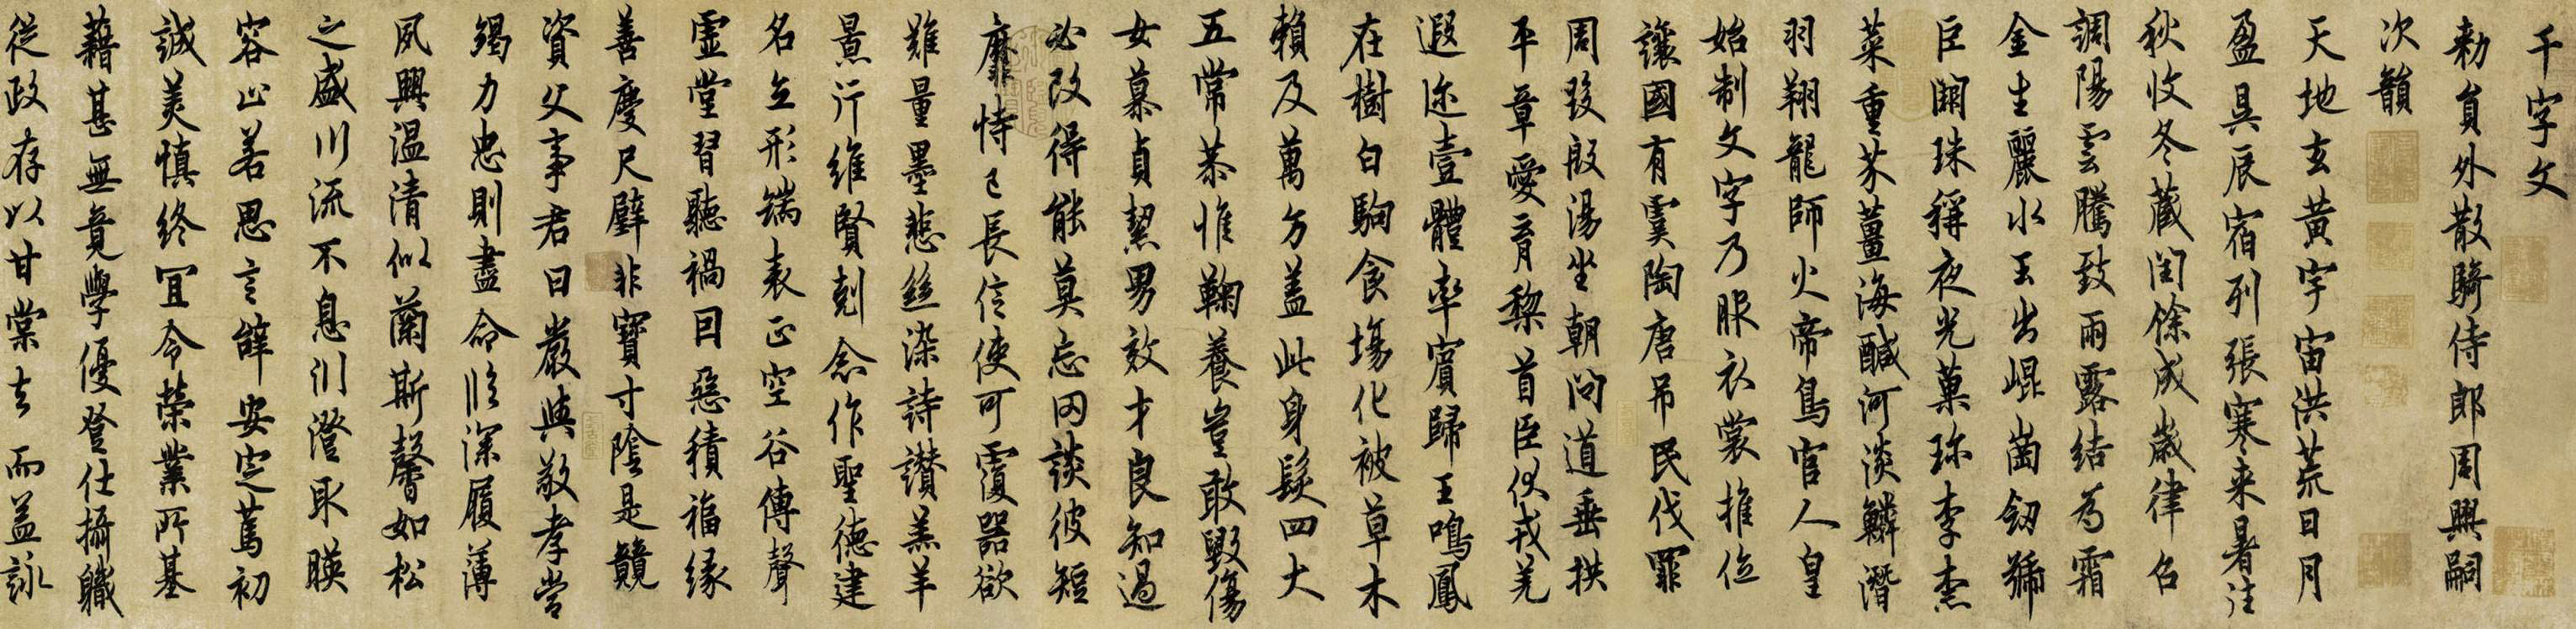 千字文
勑員外散騎侍郎周興嗣
次韻
天地玄黃宇宙洪荒日月
盈昃辰宿列張寒来暑往
秋收冬藏閏餘成歲律召
調陽雲騰致雨露結為霜
金生麗水玉出崐崗劒號
巨闕珠稱夜光菓珎李柰
菜重芥薑海醎河淡鱗潛
羽翔龍師火帝鳥官人皇
始制文字乃服衣裳推位
讓國有虞陶唐吊民伐罪
周發殷湯坐朝問道垂拱
平章愛育黎首臣伏戎羌
遐迩壹體率賓歸王鳴鳳
在樹白駒食塲化被草木
賴及萬方盖此身髮四大
五常恭惟鞠養豈敢毀傷
女慕貞絜男效才良知過
必改得能莫忘罔談彼短
靡恃己長信使可覆器欲
難量墨悲絲染詩讃羔羊
景行維賢剋念作聖德建
名立形端表正空谷傳聲
虛堂習聽禍因惡積福緣
善慶尺璧非寶寸陰是競
資父事君曰嚴與敬孝當
竭力忠則盡命臨深履薄
夙興温清似蘭斯馨如松
之盛川流不息渊澄取暎
容止若思言辭安定篤初
誠美慎終宜令榮業所基
藉甚無竟學優登仕攝職
從政存以甘棠去而益詠